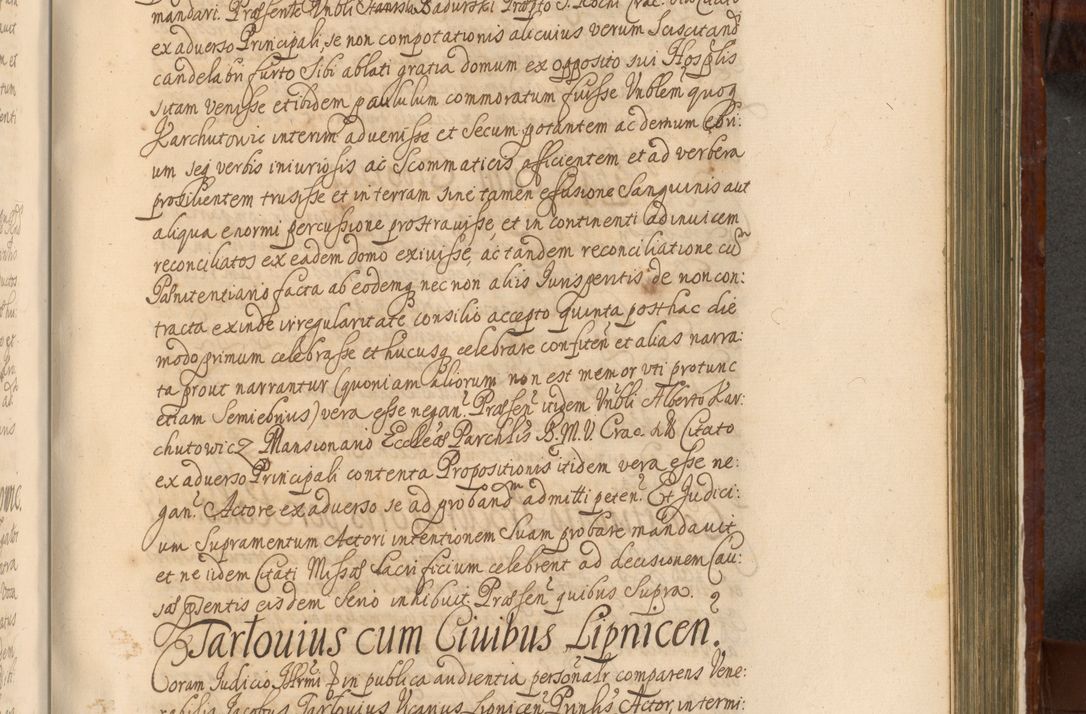 mandari. Præsente Vnbli Stanislao Badurski Præpto S. Rochi Crac.
ex adverso Principali, se non compotationis alicuius verum Sciscitand
candelabri furto Sibi ablati gratia domum ex opposito sui Hospłis
sitam venisse et ibidem paululum commoratum fuisse Vnblem quoq
Karchutowic interim advenisse et Secum potantem ac demum ebri:
um seq verbis iniuriosis ac Scommaticis afficientem et ad verbera
prosilientem trusisse et in terram sine tamen effusione Sanguinis aut
aliqua enormi percussione prostravisse et in continenti ad invicem
reconciliatos ex eadem domo exivisse, ac tandem reconciliatione cū
Pænitentiario facta ab eodemq nec non aliis Iurisperitis de non con:
tracta exinde irregularitate consilio accepto quinta post hac die
modo primum celebrasse et hucusq celebrare confiteñ et alias narra:
ta prout narrantur (quoniam aliorum non est memor vti protunc
etiam Semiebrius) vera esse negan. Præsen itidem Vnbli Alberto Kar:
chutowicz Mansionario Eccleæ Parchlis B.M.V. Crac. Citato
ex adverso Principali contenta Propositionis itidem vera esse ne:
gan. Actore ex adverso se ad proband admitti peten. Et Judici:
um Supramentum Actori intentionem Suam probare mandavit
et ne iidem Citati Missæ Sacrificium celebrent ad decisionem Cau:
sæ pñsentis eisdem Serio inhibuit. Præsen quibus Supra.
Tarlovius cum Civibus Lipnicen.
Coram Judicio in publica audientia personalr comparens Vene:
rabilis Jacobus Tarlovius Vicarius Lipnicen Prinlis Actor, in termi: